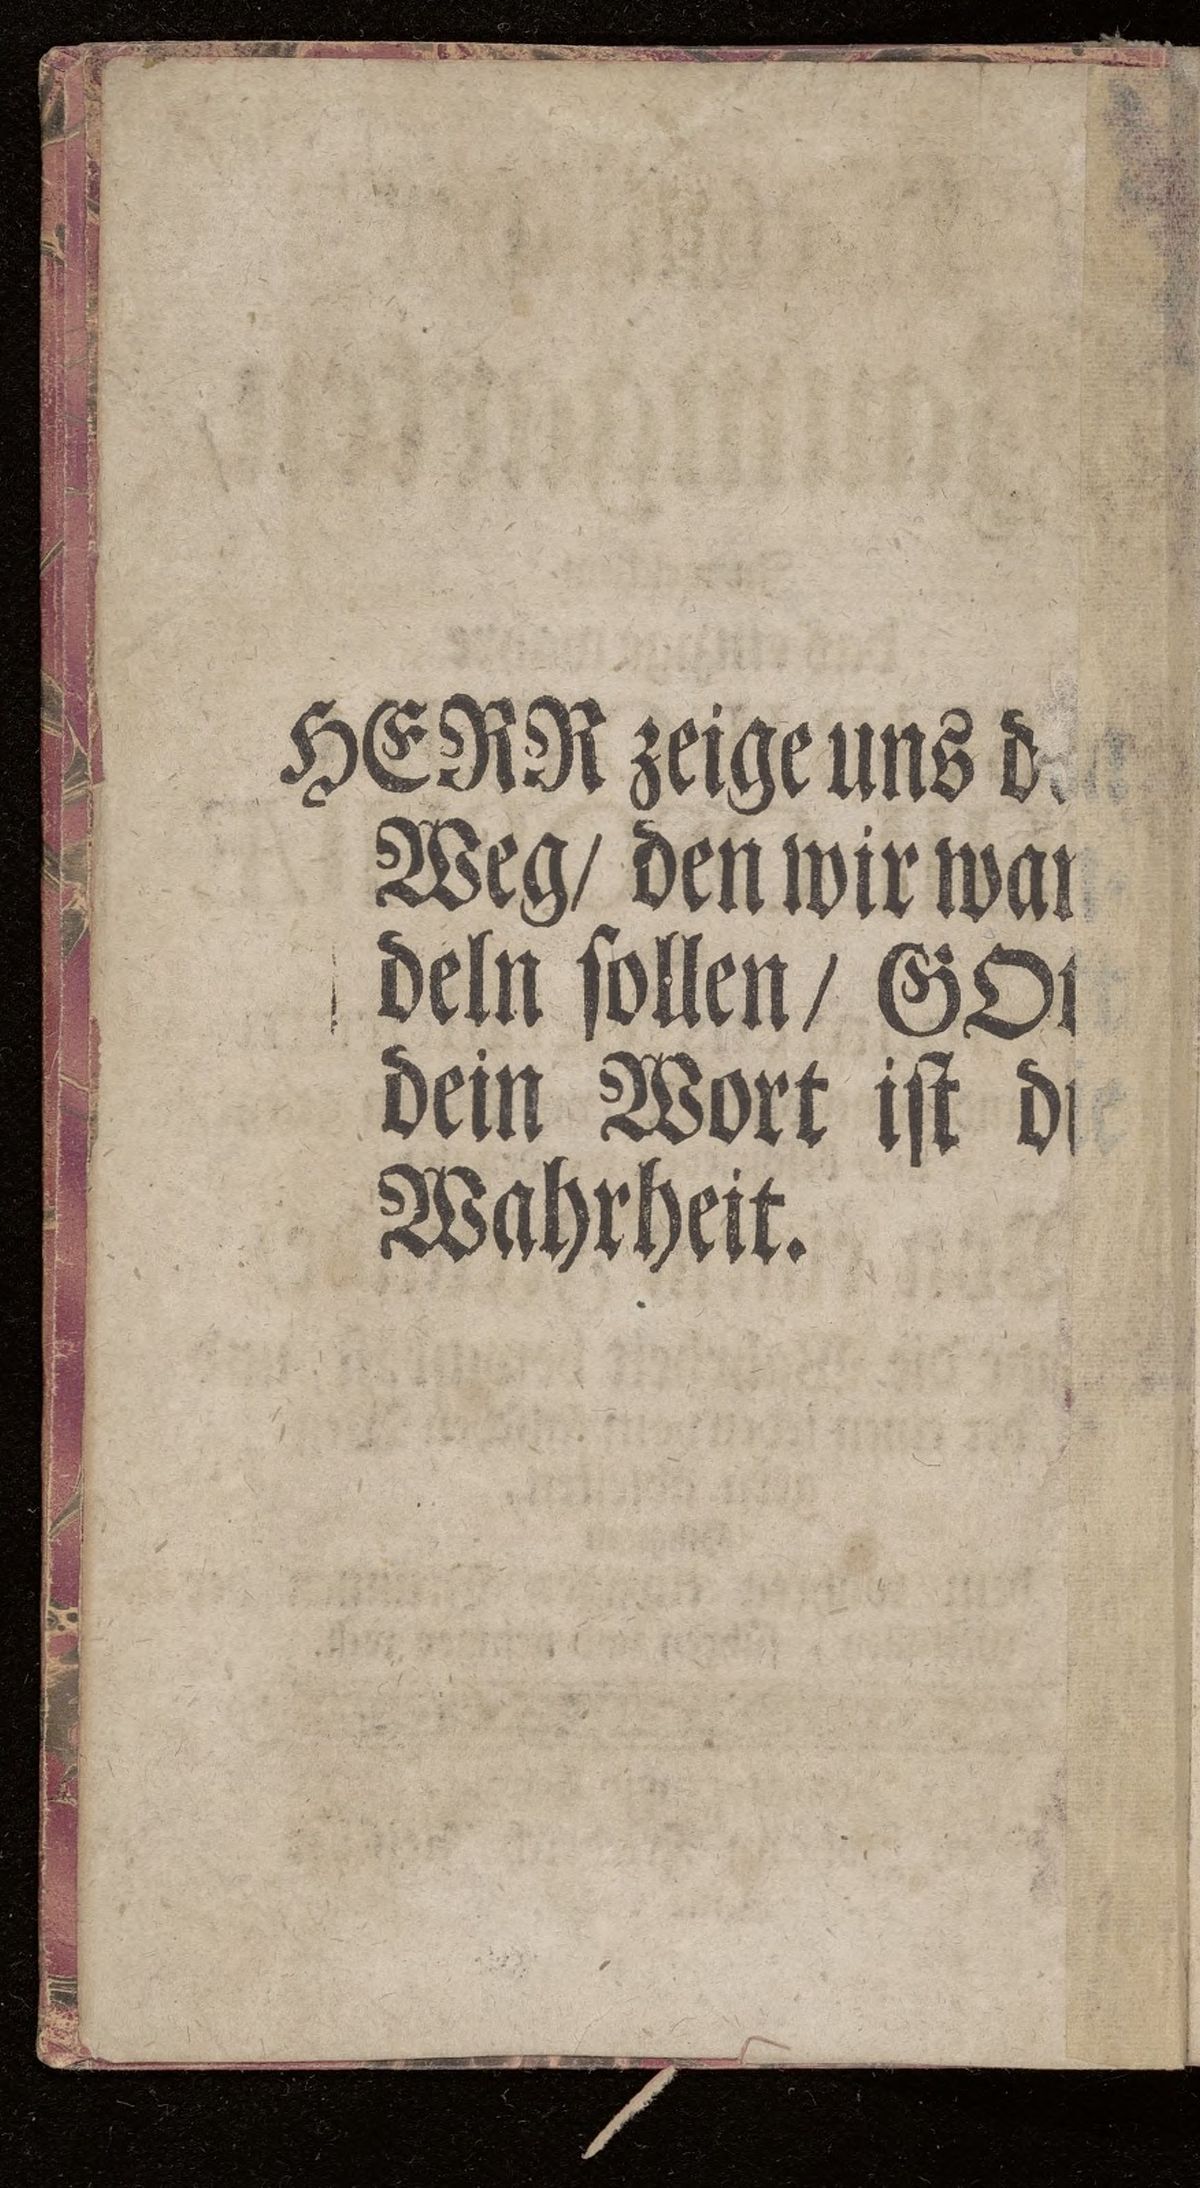 HERR zeige uns den
Weg/ den wir wan
deln ſollen/ GOtt
dein Wort iſt die
Wahrheit.